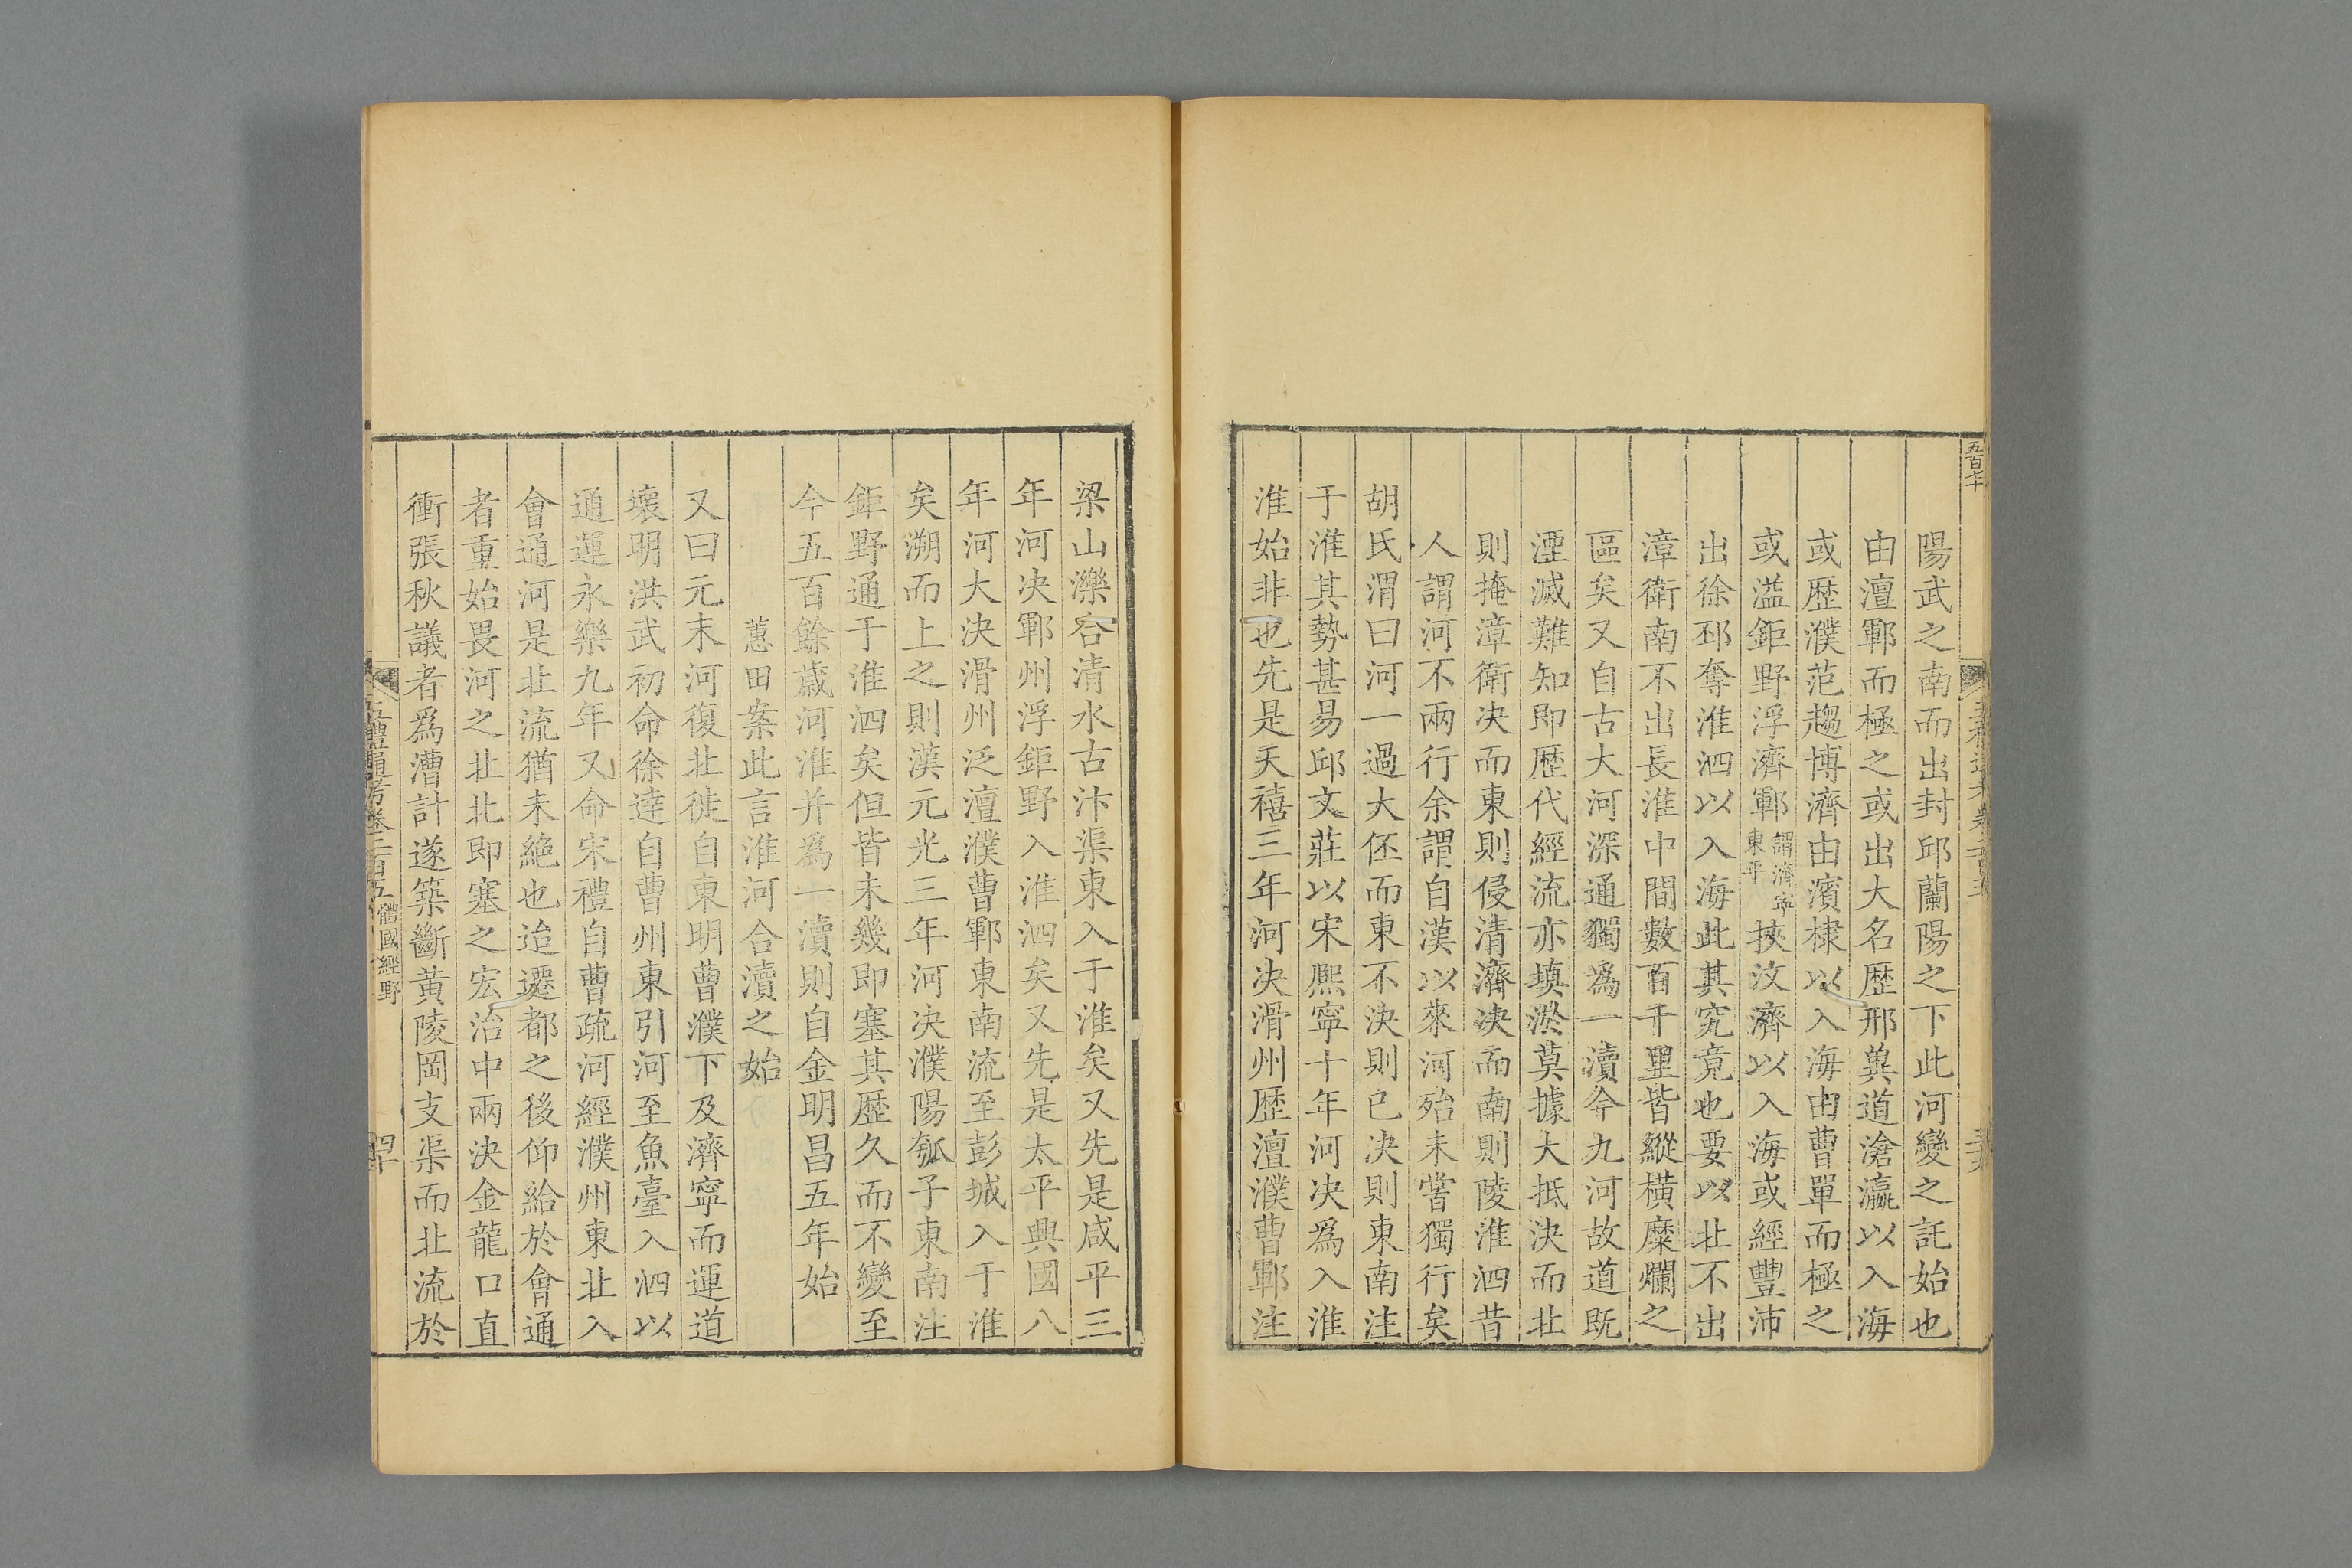 陽武之南而出封邱蘭陽之下此河變之託始也
由澶鄆而極之或出大名歷邢兾道滄瀛以入海
或歷濮范趨博濟由濱棣以入海由曹單而極之
或溢鉅野浮濟鄆謂濟寧東平挾汶濟以入海或經豐沛
出徐邳奪淮泗以入海此其究竟也要以北不出
漳衛南不出長淮中間數百千里皆縱橫糜爛之
區矣又自古大河深通獨爲一瀆今九河故道既
湮滅難知即歷代經流亦塡淤莫據大抵決而北
則掩漳衛决而東則侵清濟决而南則陵淮泗昔
人謂河不兩行余謂自漢以來河殆未嘗獨行矣
胡氏渭曰河一過大伾而東不決則已决則東南注
于淮其勢甚易邱文莊以宋熙寧十年河决爲入淮
淮始非也先是天禧三年河决滑州歷澶濮曹鄆注
梁山濼合清水古汴渠東入于淮矣又先是咸平三
年河决鄆州浮鉅野入淮泗矣又先是太平興國八
年河大決滑州泛澶濮曹鄆東南流至彭城入于淮
矣溯而上之則漢元光三年河决濮陽瓠子東南注
鉅野通于淮泗矣但皆未幾即塞其歷久而不變至
今五百餘歲河淮并爲一瀆則自金明昌五年始
蕙田案此言淮河合瀆之始
又曰元末河復北徙自東明曹濮下及濟寧而運道
壞明洪武初命徐達自曹州東引河至魚臺入泗以
通運永樂九年又命宋禮自曹疏河經濮州東北入
會通河是北流猶未絶也迨遷都之後仰給於會通
者重始畏河之北北即塞之宏治中兩決金龍口直
衝張秋議者爲漕計遂築斷黃陵岡支渠而北流於
五禮通考卷二百五 體國經野
四十